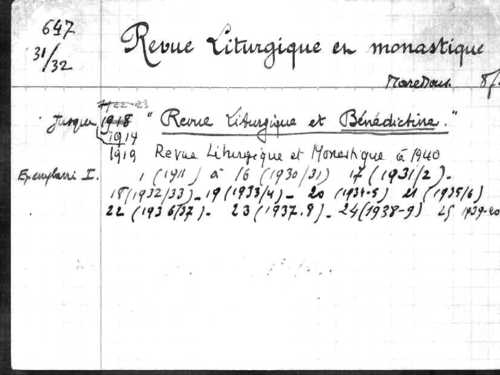 647
31/32
Revue Liturgique en monastique
Maredsous.
1922-23
Jusque 1918 "Revue Liturgique et Bénédictine."
1914
1919 Revue Liturgique et Monastique à 1940
Exemplarri I. 1 (1911) à 16 (1930/31) 17 (1931/2)-
18 (1932/33)- 19 (1933/4)- 20 (1934-5) 21 (1935/6)
22 (1936/37)- 23 (1937-8)- 24 (1938-9) 25 1939-40